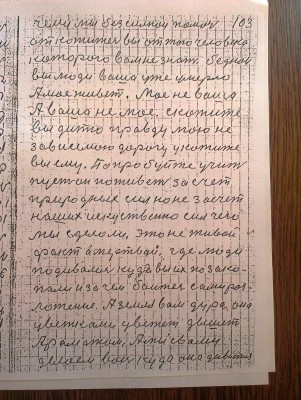 чем мы без силы помочь 103
от скажите вы от того человека
которого вам не знать бедной
вы люди ваша уже умерло
А мое живет. Мое не ваша
А ваша не мое, скажите
вы дитю правду мою не
зависемою дорогу укажите
вы ему. Попробуйте учит
пуст он поживет за счет
природных сил но не за счет
наших искуственно сил чего
мы сделали, это не живой
факт а мертвой, где люди
подивались куда вы их позако-
пали и за чем боитес самираз
ложение. А земля вам дура, она
цветками цветет дышит
Араматом, А
делаем вон куда она дивится